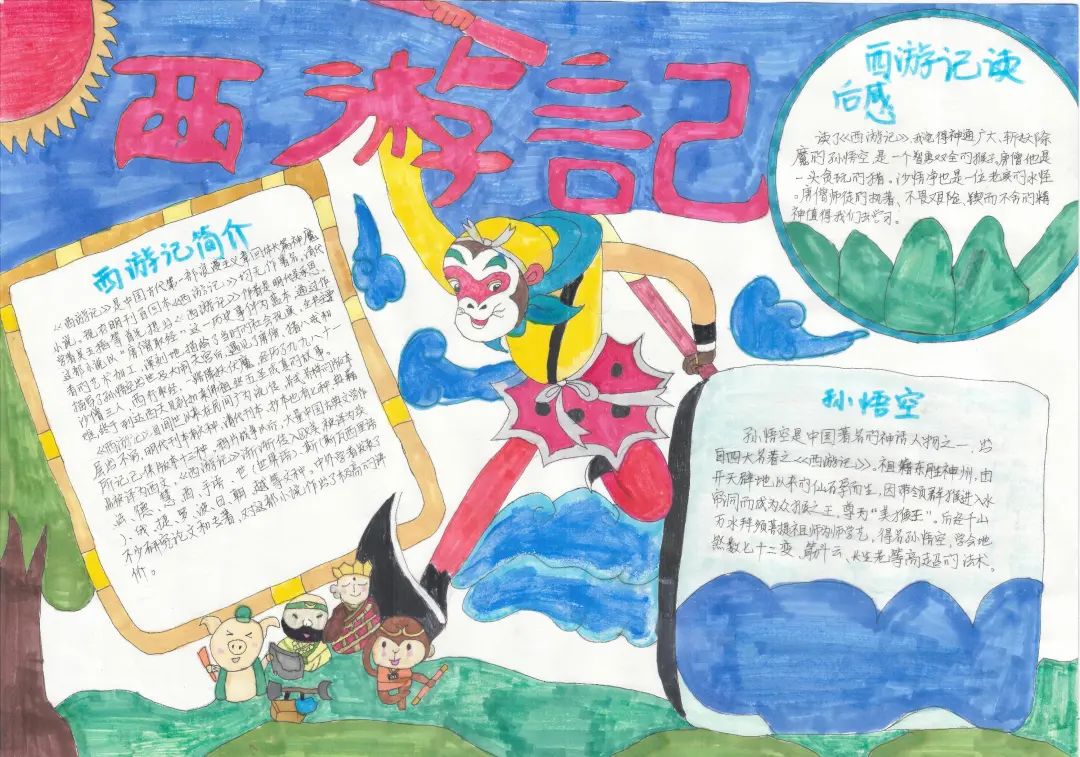 西遊記
西游记简介
《西游记》是中国古代第一部浪漫主义章回体长篇神魔
小说。现存明刊百回本《西游记》均无作者署名。清代
学者吴玉搢等首先提出《西游记》作者是明代吴承恩。
这部小说以“唐僧取经”这一历史事件为蓝本，通过作
者的艺术加工，深刻地描绘了当时的社会现实。全书主要
描写了孙悟空出世及大闹天宫后，遇见了唐僧、猪八戒和
沙僧三人，西行取经，一路降妖伏魔，经历了九九八十一
难，终于到达西天见到如来佛祖，五圣成真的故事。
《西游记》自问世以来在民间广为流传，各式各样的版本
层出不穷，明代刊本有六种，清代刊本、抄本也有七种，典籍
所记已佚版本十三种。鸦片战争以后，大量中国古典文学作
品被译为西文，《西游记》渐渐传入欧美，被译为英、
法、德、意、西、手语、世（世界语）、斯（斯瓦西里语
）、俄、捷、罗、波、日、朝、越等文种。中外学者发表了
不少研究论文和专著，对这部小说作出了极高的评
价。
西游记读
后感
读了《西游记》，我觉得神通广大、斩妖除
魔的孙悟空是一个智勇双全的猴子。唐僧他是
一头贪玩的猪。沙悟净也是一位老实的水怪
。唐僧师徒的执著、不畏艰险、锲而不舍的精
神值得我们去学习。
孙悟空
孙悟空是中国著名的神话人物之一，出
自四大名著之《西游记》。祖籍东胜神州，由
开天辟地以来的仙石孕育而生，因带领群猴进入水
帘洞而成为众猴之王，尊为“美猴王”。后经千山
万水拜须菩提祖师为师学艺，得名孙悟空，学会地
煞数七十二变、筋斗云、长生老等高超的法术。